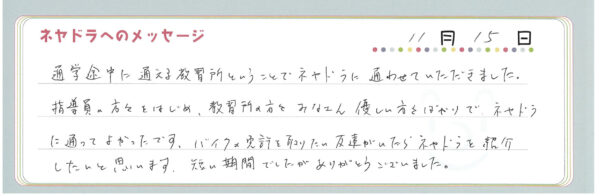 ネヤドラへのメッセージ
11月15日
通学途中に通える教習所ということでネヤドラに通わせていただきました。
指導員の方々をはじめ、教習所の方々みなさん優しい方々ばかりで、ネヤドラ
に通ってよかったです。バイクの免許を取りたい友達がいたらネヤドラを紹介
したいと思います。短い期間でしたがありがとうございました。